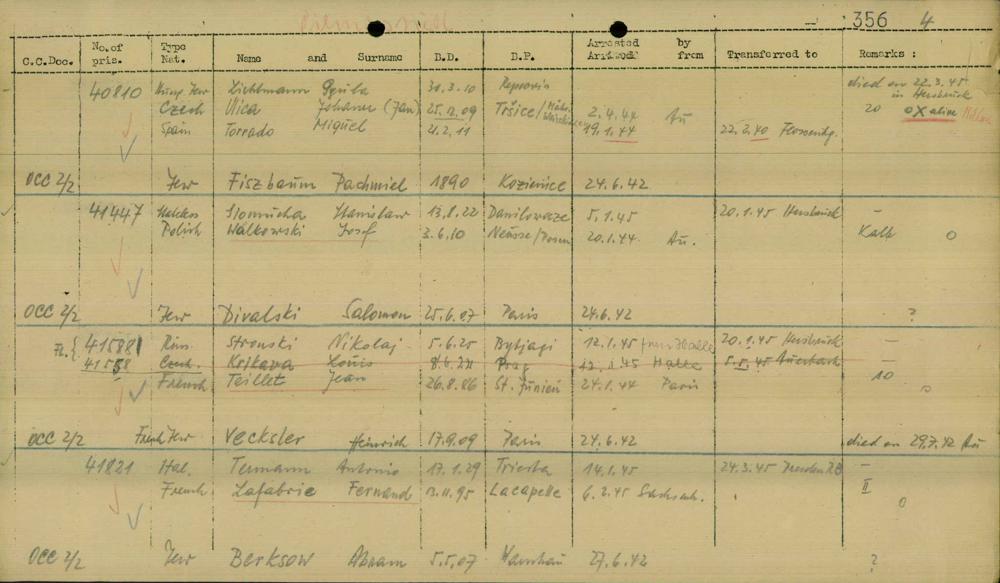 356 4
C.C.Doc. No. of pris. Type Nat. Name and Surname B.D. B.P. Arrested Arrived by from Transferred to Remarks :
40810 Hung. Jew Lichtmann Gyula 31.3.10 died on 22.3.45 in Hersbruck
Czech Ulica Johann (Jan) 25.12.09 Tršice/ 2.4.44 Au 20 OX alive
Spain Torrado Miguel 21.2.11 19.1.44 22.2.40 Flossenbg.
OCC 2/2 Jew Fiszbaum Pachmiel 1890 Kozienice 24.6.42
41447 Stanislaw 13.8.22 5.1.45 20.1.45 Hersbruck -
Polish Walkowski Josef 3.6.10 Neusse/Posen 20.1.44 Au. Kalk 0
OCC 2/2 Jew Divalski Salomon 25.6.07 Paris 24.6.42 ?
Fl. { 41588 Russ. Stronski Nikolaj 5.6.25 12.1.45 from Halle 20.1.45 Hersbruck -
41558 Czech. Krikava Louis 8.6.24 Prag 12.1.45 Halle 5.5.45 -
French Teillet Jean 26.8.86 St. Junien 24.1.44 Paris 10 0
OCC 2/2 French Jew Vecksler Heinrich 17.9.09 Paris 24.6.42 died on 29.7.42 Au
41821 Ital. Termann Antonio 17.1.29 Triesta 14.1.45 24.3.45 Dresden RB -
French Lafabrie Fernand 13.11.95 Lacapelle 6.2.45 Sachsenh. II 0
OCC 2/2 Jew Berksow Abram 5.5.07 Warschau 27.6.42 ?